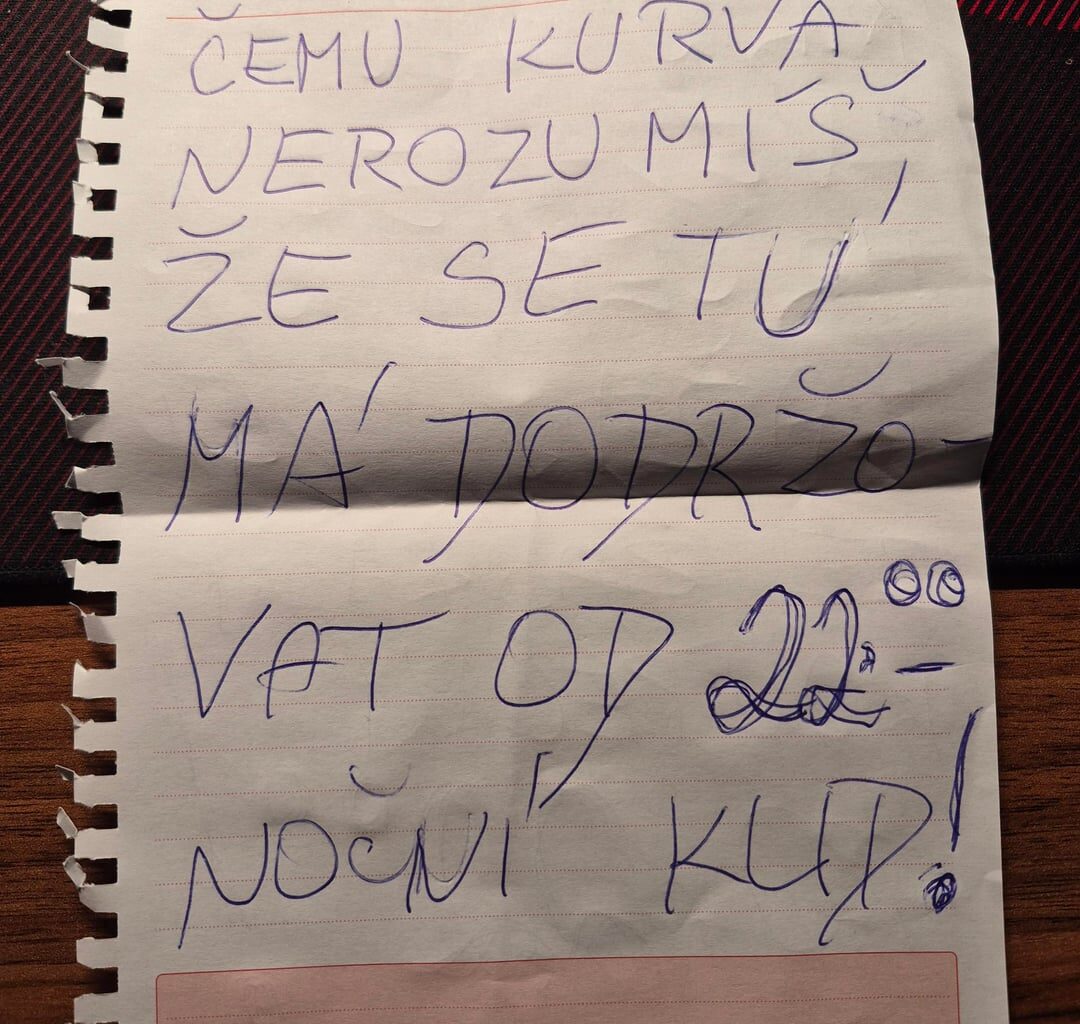 ČEMU KURVA
NEROZUMÍŠ,
ŽE SE TU
MÁ DODRŽO-
VAT OD 22:00-
NOČNÍ KLID!